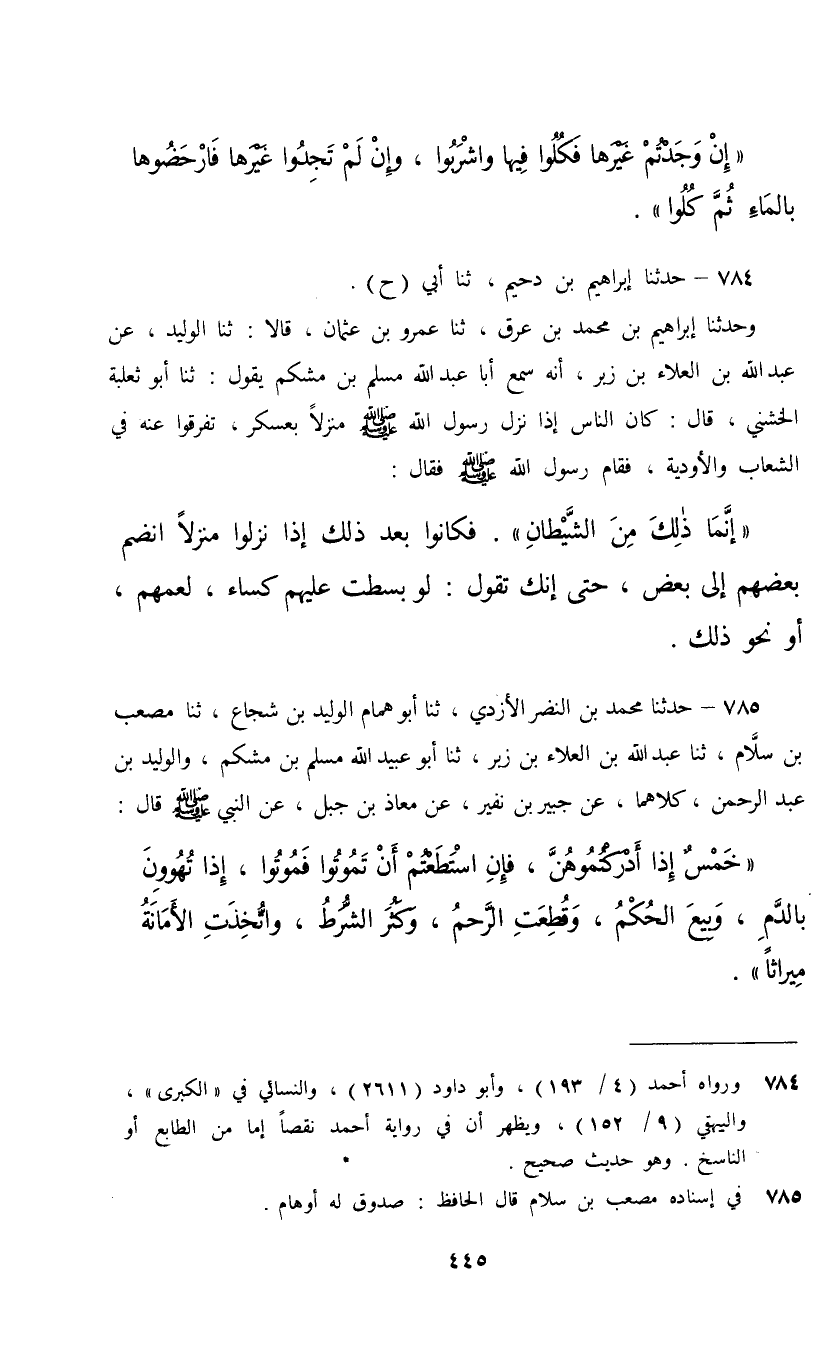 « إِنْ وَجَدْتُمْ غَيْرَها فَكُلُوا فِيها واشْرَبُوا ، وإِنْ لَمْ تَجِدُوا غَيْرَها فَارْحَضُوها
بالمَاءِ ثُمَّ كُلُوا » .
٧٨٤ – حدثنا إبراهيم بن دحيم ، ثنا أبي (ح) .
وحدثنا إبراهيم بن محمد بن عرق ، ثنا عمرو بن عثمان ، قالا : ثنا الوليد ، عن
عبد الله بن العلاء بن زبر ، أنه سمع أبا عبد الله مسلم بن مشكم يقول : ثنا أبو ثعلبة
الخشني ، قال : كان الناس إذا نزل رسول الله ﷺ منزلاً بعسكر ، تفرقوا عنه في
الشعاب والأودية ، فقام رسول الله ﷺ فقال :
« إنَّمَا ذٰلِكَ مِنَ الشَّيْطانِ » . فكانوا بعد ذلك إذا نزلوا منزلاً انضم
بعضهم إلى بعض ، حتى إنك تقول : لو بسطت عليهم كساء ، لعمهم ،
أو نحو ذلك .
٧٨٥ – حدثنا محمد بن النضر الأزدي ، ثنا أبو همام الوليد بن شجاع ، ثنا مصعب
بن سلَّام ، ثنا عبد الله بن العلاء بن زبر ، ثنا أبو عبيد الله مسلم بن مشكم ، والوليد بن
عبد الرحمن ، كلاهما ، عن جبير بن نفير ، عن معاذ بن جبل ، عن النبي ﷺ قال :
« خَمْسٌ إذا أَدْرَكْتُمُوهُنَّ ، فإنِ اسْتَطَعْتُمْ أَنْ تَمُوتُوا فَمُوتُوا ، إذا تُهُوونَ
بالدَّمِ ، وَبِيعَ الحُكْمُ ، وَقُطِعَتِ الرَّحمُ ، وَكَثُرَ الشُّرَطُ ، واتُّخِذَتِ الأَمَانَةُ
مِيراثاً » .
٧٨٤ ورواه أحمد (٤ / ١٩٣) ، وأبو داود (٢٦١١) ، والنسائي في « الكبرى » ،
والبيهقي (٩ / ١٥٢) ، ويظهر أن في رواية أحمد نقصاً إما من الطابع أو
الناسخ . وهو حديث صحيح .
٧٨٥ في إسناده مصعب بن سلام قال الحافظ : صدوق له أوهام .
٤٤٥